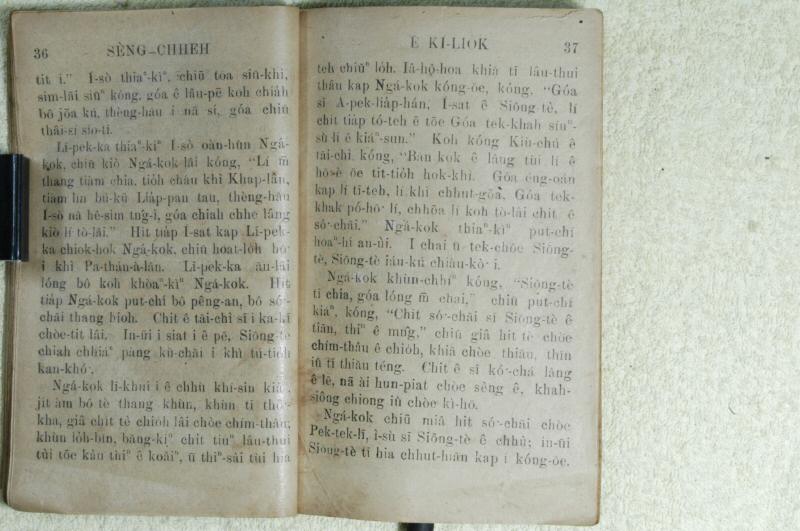 36 SÈNG-CHHEH
tit i.” Í-sò thiaⁿ-kìⁿ, chiū toa siū-khì,
sim-lāi siūⁿ kóng, góa ê lāu-pē koh chiah
bô jōa kú, thèng-hāu i nā sí, góa chiū
thâi-sí sió-tī.
Lī-pek-ka thiaⁿ-kìⁿ Í-sò oàn-hūn Ngá-
kok, chiū kiò Ngá-kok lâi kóng, “Lí m̄
thang tiàm chia, tio̍h cháu khì Khap-lân,
tiàm lín bú-kū Lia̍p-pan tau, thèng-hāu
Í-sò nā hê-sim tńg-ì, góa chiah chhe lâng
kiò lí tò-lâi.” Hit tia̍p Í-sat kap Lī-pek-
ka chiok-hok Ngá-kok, chiū hoat-lo̍h hō͘
i khì Pa-thán-á-lân. Lī-pek-ka āu-lâi
lóng bô koh khòaⁿ-kìⁿ Ngá-kok. Hit
tia̍p Ngá-kok put-chí bô pêng-an, bô só͘-
chāi thang bióh. Chit ê tāi-chì sī i ka-kī
chòe-tit lâi. In-ūi i siat i ê pē, Siōng-tè
chiah chhiáⁿ pàng kū-chāi i khì tú-tio̍h
kan-khó͘.
Ngá-kok lī-khui i ê chhù khí-sin kiâⁿ,
ji̍t àm bô tè thang khùn, khùn tī thô͘-
kha, giâ chi̍t tè chio̍h lâi chòe chím-thâu;
khùn lo̍h-bîn, bāng-kìⁿ chi̍t tiuⁿ lâu-thui
tùi tōe kàu thiⁿ ê koâiⁿ, ū thiⁿ-sài tùi hia
Ê KÌ-LIO̍K 37
teh chiūⁿ lo̍h. Iâ-hô-hoa khiā tī lâu-thui
thâu kap Ngá-kok kóng-ōe, kóng, “Góa
sī A-pek-lia̍p-hán, Í-sat ê Siōng-tè, lí
chit tia̍p tó-teh ê tōe Góa tek-khah siúⁿ-
sù lí ê kiáⁿ-sun.” Koh kóng Kiù-chú ê
tāi-chì, kóng, “Bān kok ê lâng tùi lí ê
hō͘-è ōe tit-tio̍h hok-khì. Góa éng-oán
kap lí tī-teh, lí khì chhut-gōa, Góa tek-
khak pó-hō͘ lí, chhōa lí koh tò-lâi chit ê
só͘-chāi.” Ngá-kok thiaⁿ-kìⁿ put-chí
hoaⁿ-hí an-ùi. I chai ū tek-chōe Siōng-
tè, Siōng-tè iáu-kú chiàu-kò͘ i.
Ngá-kok khùn-chhíⁿ kóng, “Siōng-tè
tī chia, góa lóng m̄ chai,” chiū put-chí
kiaⁿ, kóng, “Chit só͘-chāi sī Siōng-tè ê
tiān, thiⁿ ê mn̂g,” chiū giâ hit tè chòe
chím-thâu ê chio̍h, khiā chòe thiāu, thîn
iû tī thiāu téng. Chit ê sī kó͘-chá lâng
ê lē, nā ài hun-piat chòe sèng ê, khah-
siông chiong iû chòe kì-hō.
Ngá-kok chiū miâ hit só͘-chāi chòe
Pek-tek-lī, ì-sù sī Siōng-tè ê chhù; in-ūi
Siōng-tè tī hia chhut-hiān kap i kóng-ōe.